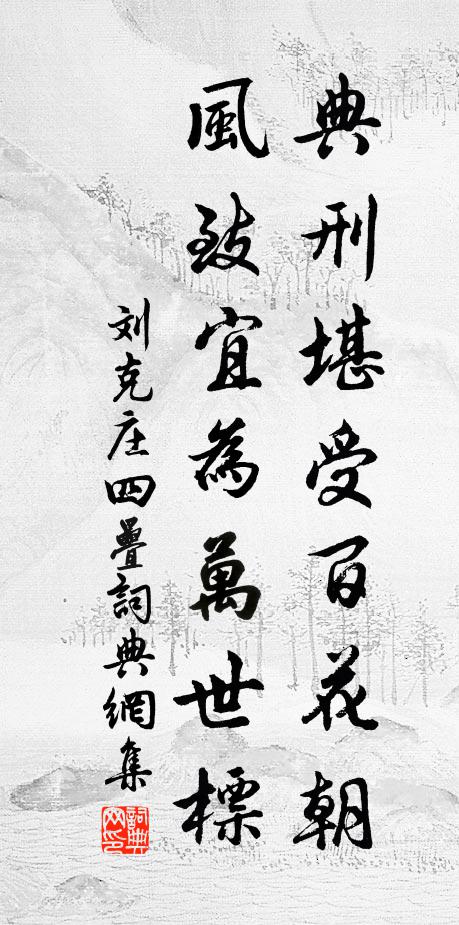 典刑堪受百花朝
風致宜為萬世標
刘克庄四疊詞典網集
詞典網印